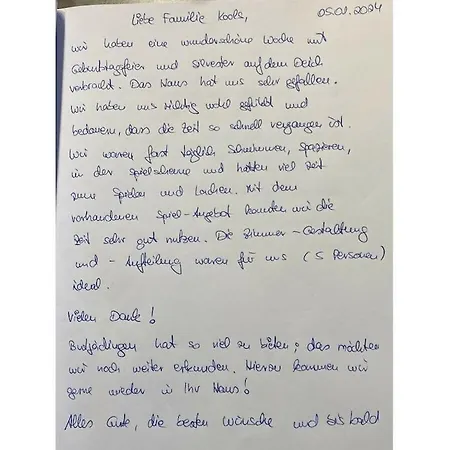 Liebe Familie Kools, 05.01.2024
wir haben eine wunderschöne Woche mit
Geburtstagsfeier und Silvester auf dem Deich
verbracht. Das Haus hat uns sehr gefallen.
Wir haben uns richtig wohl gefühlt und
bedauern, dass die Zeit so schnell vergangen ist.
Wir waren fast täglich Schwimmen, Spazieren,
in der Spielscheune und hatten viel Zeit
zum Spielen und Lachen. Mit dem
vorhandenen Spiel-Angebot konnten wir die
Zeit sehr gut nutzen. Die Zimmer-Gestaltung
und -Aufteilung waren für uns (5 Personen)
ideal.
Vielen Dank!
Butjadingen hat so viel zu bieten; das möchten
wir noch weiter erkunden. Hierzu kommen wir
gerne wieder in Ihr Haus!
Alles Gute, die besten Wünsche und bis bald